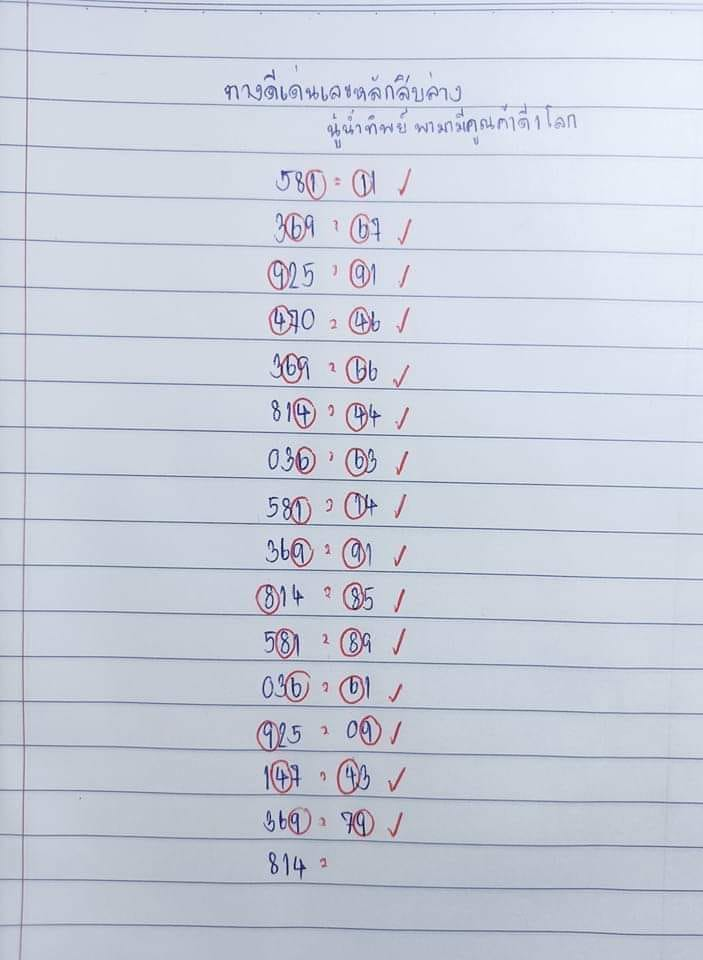 ทางดีเด่นเลขหลักสิบล่าง
นู๋น้ำทิพย์ พามามีคูณค้าดี1โลก
581 = 11 ✓
369 = 67 ✓
925 = 91 ✓
470 = 46 ✓
369 = 66 ✓
814 = 44 ✓
036 = 63 ✓
581 = 14 ✓
369 = 91 ✓
814 = 85 ✓
581 = 89 ✓
036 = 61 ✓
925 = 09 ✓
147 = 43 ✓
369 = 79 ✓
814 =